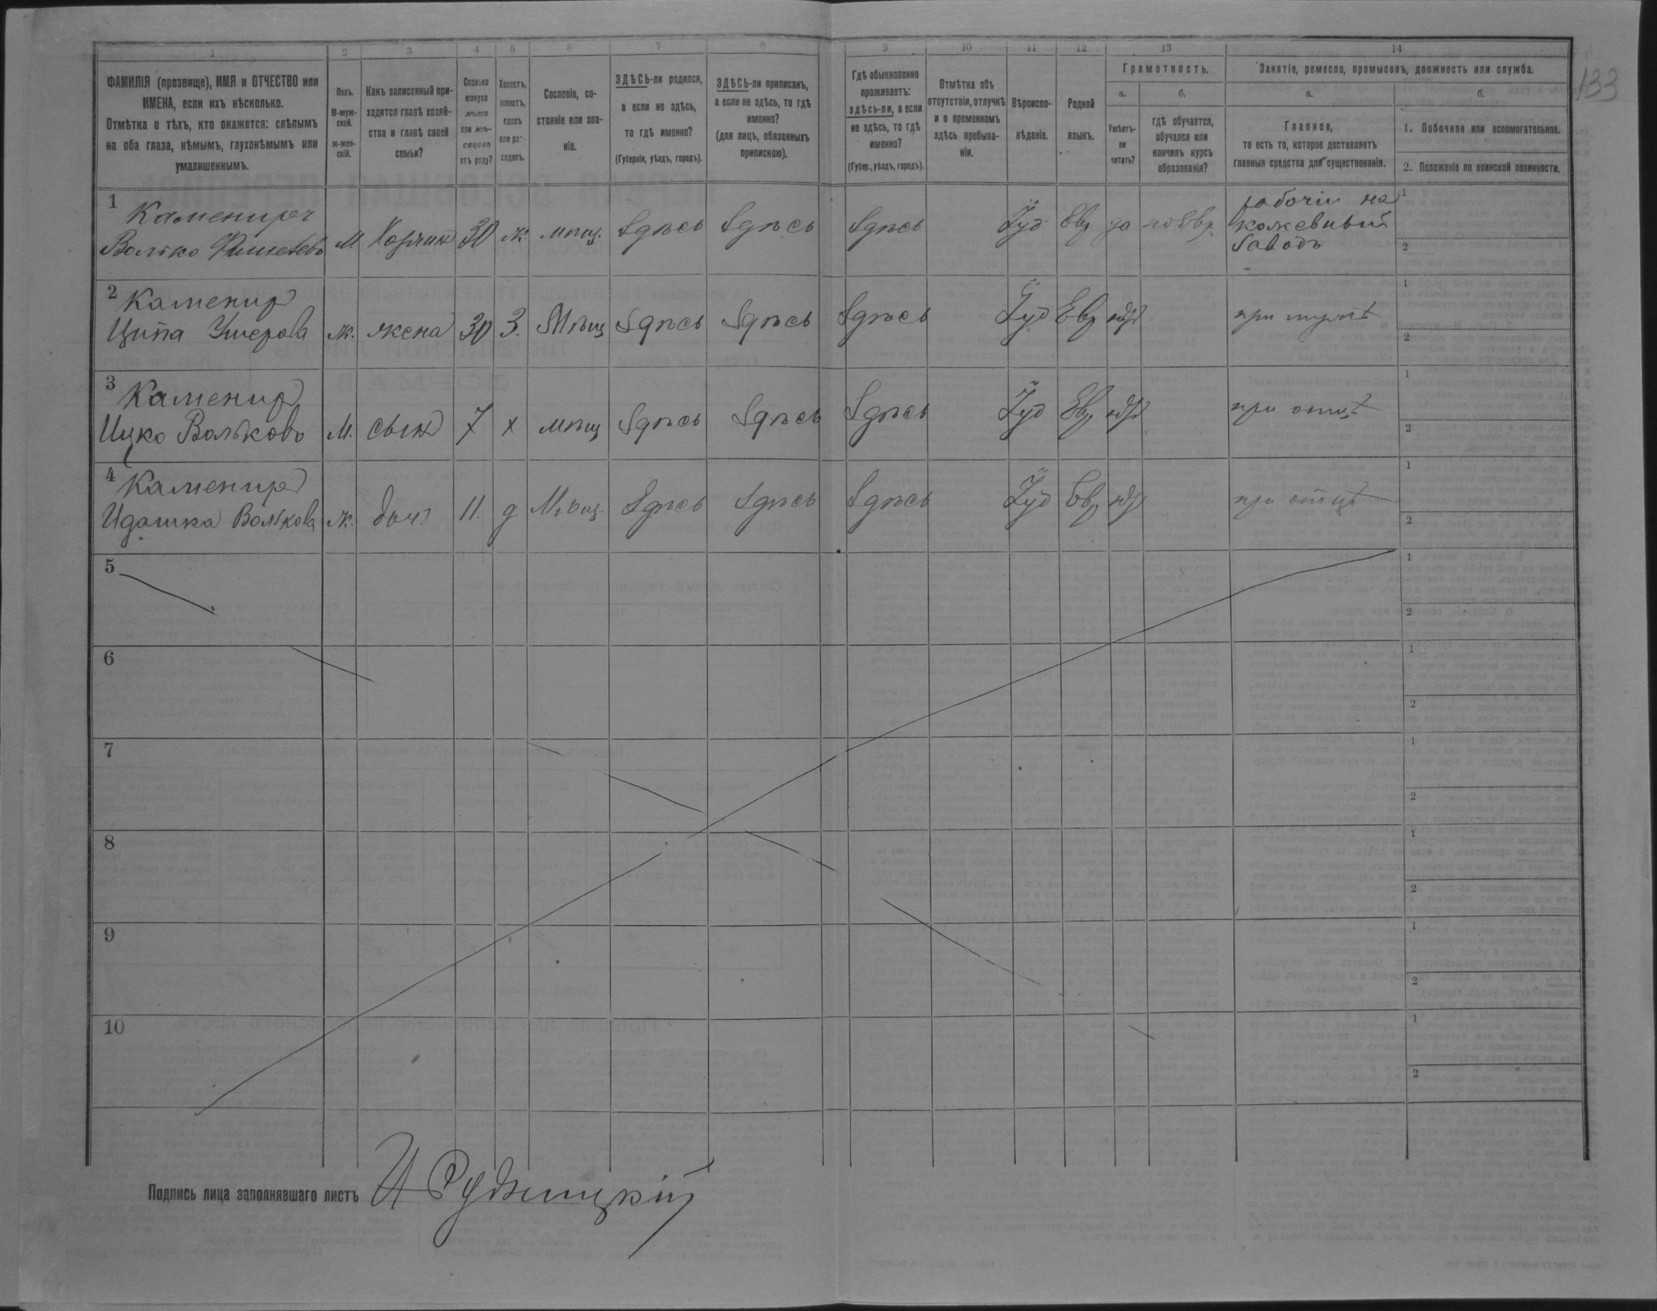 1 2 3 4 5 6 7 8 9 10 11 12 13 14
133
ФАМИЛІЯ (прозвище), ИМЯ и ОТЧЕСТВО или
ИМЕНА, если ихъ нѣсколько.
Отмѣтка о тѣхъ, кто окажется: слѣпымъ
на оба глаза, нѣмымъ, глухонѣмымъ или
умалишеннымъ.
Полъ.
М-муж-
ской.
ж-жен-
скій.
Какъ записанный при-
ходится главѣ хозяй-
ства и главѣ своей
семьи?
Сколько
минуло
лѣтъ
или мѣ-
сяцевъ
отъ роду?
Холостъ,
женатъ,
вдовъ
или раз-
веденъ.
Сословіе, со-
стояніе или зва-
ніе.
ЗДѢСЬ-ли родился,
а если не здѣсь,
то гдѣ именно?
(Губернія, уѣздъ, городъ).
ЗДѢСЬ-ли приписанъ,
а если не здѣсь, то гдѣ
именно?
(для лицъ, обязанныхъ
припискою).
Гдѣ обыкновенно
проживаетъ:
здѣсь-ли, а если
не здѣсь, то гдѣ
именно?
(Губер., уѣздъ, городъ).
Отмѣтка объ
отсутствіи, отлучкѣ
и о временномъ
здѣсь пребыва-
ніи.
Вѣроиспо-
вѣданіе.
Родной
языкъ.
Грамотность.
а. б.
Умѣетъ-
ли
читать?
гдѣ обучается,
обучался или
кончилъ курсъ
образованія?
Занятіе, ремесло, промыселъ, должность или служба.
а. б.
Главное,
то есть то, которое доставляетъ
главныя средства для существованія.
1. Побочное или вспомогательное.
2. Положеніе по воинской повинности.
1 Каменирч
Волько М Хозяин 30 ж. мѣщ. Здѣсь Здѣсь Здѣсь Іуд Евр да по Евр
рабочій на
кожевный
Заводъ
1
2
2 Каменир
Ципа Ушерова ж. жена 30 З. Мѣщ Здѣсь Здѣсь Здѣсь Іуд Евр нѣт при мужѣ
1
2
3 Каменир
Ицко Вольковъ М. сын 7 х мѣщ Здѣсь Здѣсь Здѣсь Іуд Евр нѣт при отцѣ
1
2
4 Каменир
Идашка Волькова ж. дочь 11. д Мѣщ. Здѣсь Здѣсь Здѣсь Іуд Евр нѣт при отцѣ
1
2
5
1
2
6
1
2
7
1
2
8
1
2
9
1
2
10
1
2
Подпись лица заполнявшаго листъ И Рудницкій